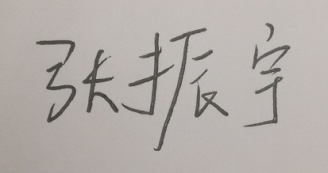 张振宇